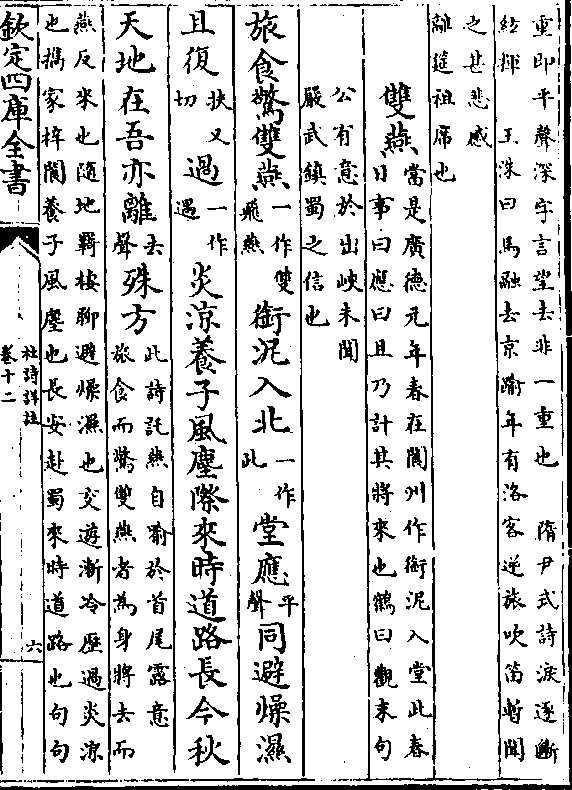 重即平聲深字言望去非一重也　隋尹式詩淚逐斷
絃揮　王洙曰馬融去京踰年有洛客逆旅吹笛暫聞
之甚悲感
離筵祖席也
雙燕
當是廣德元年春在閬州作銜泥入堂此春
日事曰應曰且乃計其將來也鶴曰觀末句
公有意於出峽未聞
嚴武鎮蜀之信也
旅食驚雙燕一作雙飛燕銜泥入北一作此堂應平聲同避燥濕
且復扶又切過一作遇炎涼養子風塵際來時道路長今秋
天地在吾亦離去聲殊方
此詩託燕自喻於首尾露意
旅食而驚雙燕者為身將去而
燕反來也隨地羇棲聊避燥濕也交遊漸冷歷過炎涼
也攜家梓閬養子風塵也長安赴蜀來時道路也句句
欽定四庫全書
杜詩詳註
卷十二
六